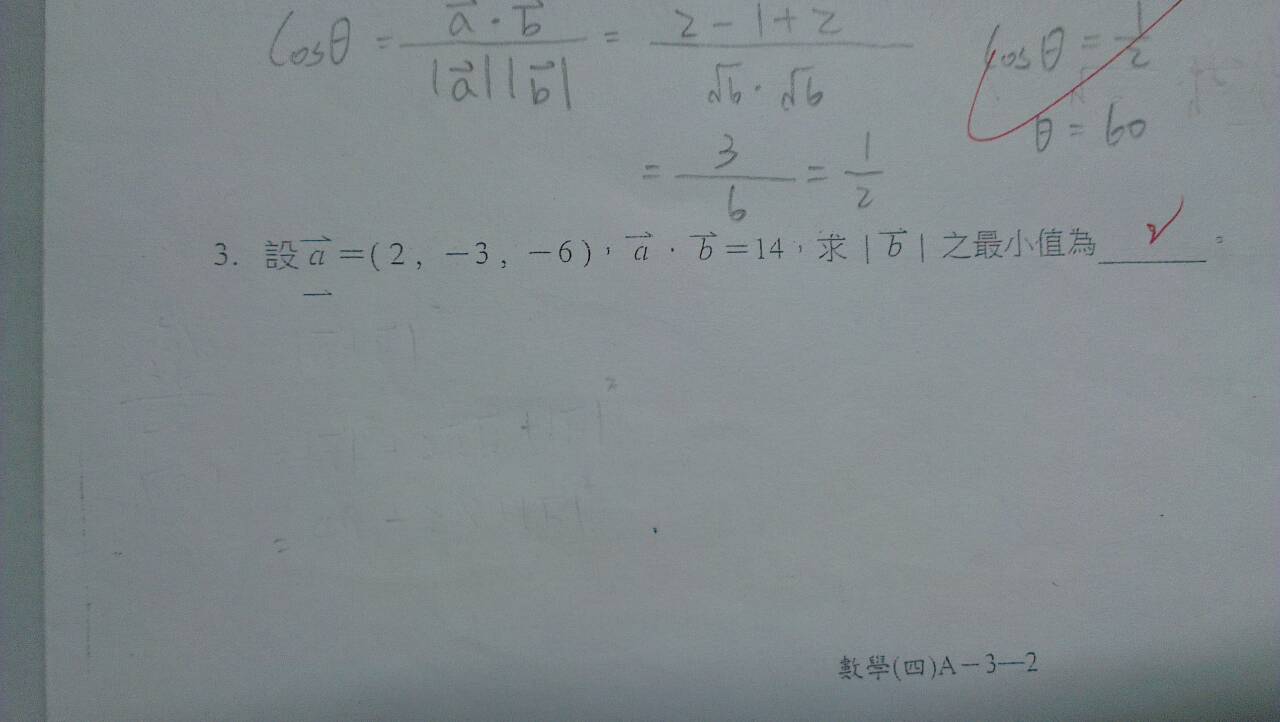 cosθ = a⃗ · b⃗ / |a⃗| |b⃗| = 2 - 1 + 2 / √6 · √6
cosθ = 1/2
θ = 60
= 3/6 = 1/2
3. 設 a⃗ =( 2 , －3 , －6 )，a⃗ · b⃗ =14，求 | b⃗ | 之最小值為______。
數學(四)A－3—2